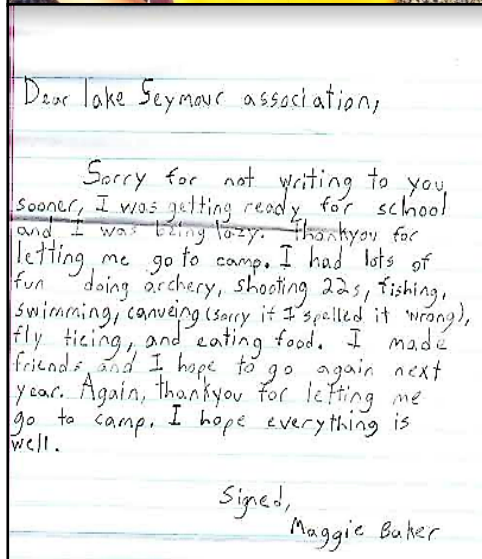 Dear lake Seymour association,
Sorry for not writing to you
sooner, I was getting ready for school
and I was being lazy. Thankyou for
letting me go to camp. I had lots of
fun doing archery, shooting 22s, fishing,
swimming, canueing (sorry if I spelled it wrong),
fly tieing, and eating food. I made
friends and I hope to go again next
year. Again, thankyou for letting me
go to camp. I hope everything is
well.
Signed,
Maggie Baker